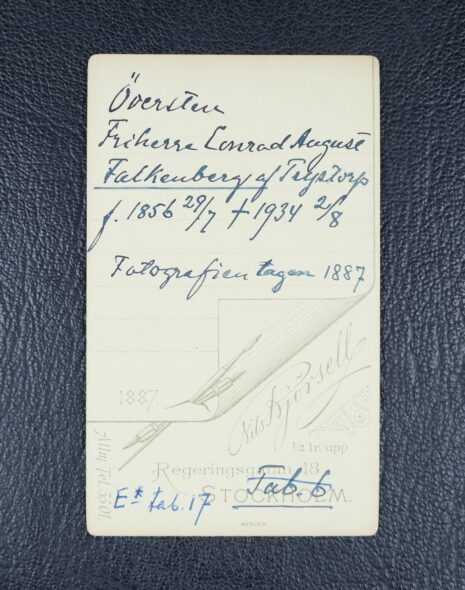 Översten
Friherre Conrad August
Falkenberg af Trystorp
f. 1856 29/7 † 1934 2/8
Fotografien tagen 1887
1887.
Nils Björsell
½ tr. upp
Regeringsgatan 18
STOCKHOLM.
Allm. Tel. 5501
Tab. 6
E* tab. 17